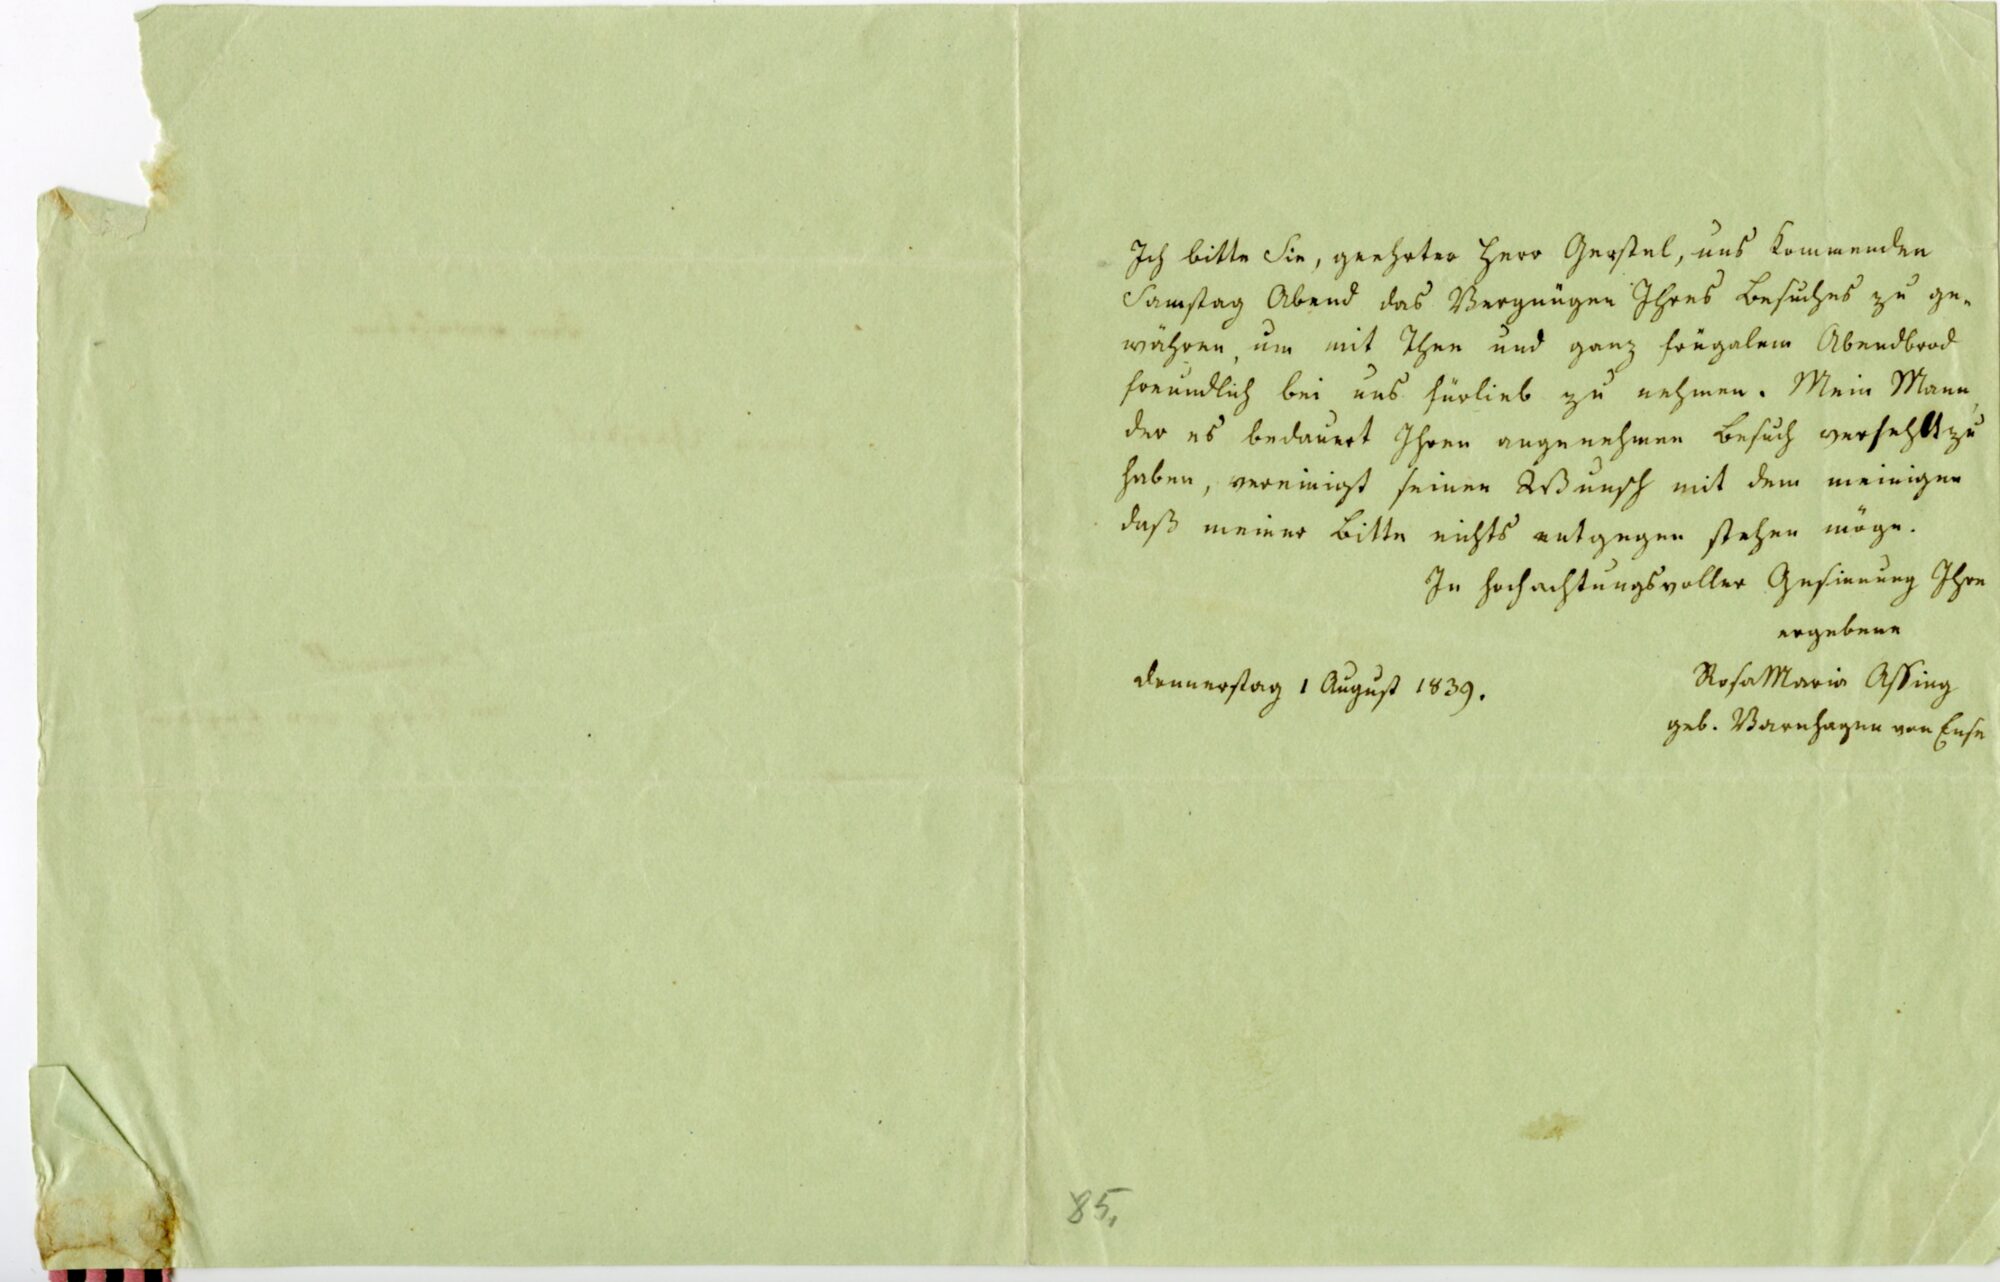 Ich bitte Sie, geehrter Herr Gerstel, uns kommenden
Samstag Abend das Vergnügen Ihres Besuches zu ge-
währen, um mit Thee und ganz frugalem Abendbrod
freundlich bei uns fürlieb zu nehmen. Mein Mann,
der es bedauert Ihren angenehmen Besuch verfehlt zu
haben, vereinigt seinen Wunsch mit dem meinigen
daß meiner Bitte nichts entgegen stehen möge.
In hochachtungsvoller Gesinnung Ihre
ergebene
Rosa Maria Assing
geb. Varnhagen von Ense
Donnerstag 1 August 1839.
85.